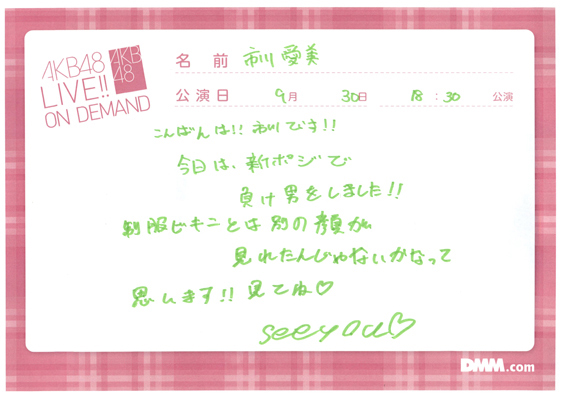 AKB48
LIVE!!
ON DEMAND
AKB
48
名前 市川愛美
公演日 9月 30日 18:30 公演
こんばんは!! 市川です!!
今日は、新ポジで
負け男をしました!!
制服ビキニとは別の顔が
見れたんじゃないかなって
思います!! 見てね♡
see you♡
DMM.com